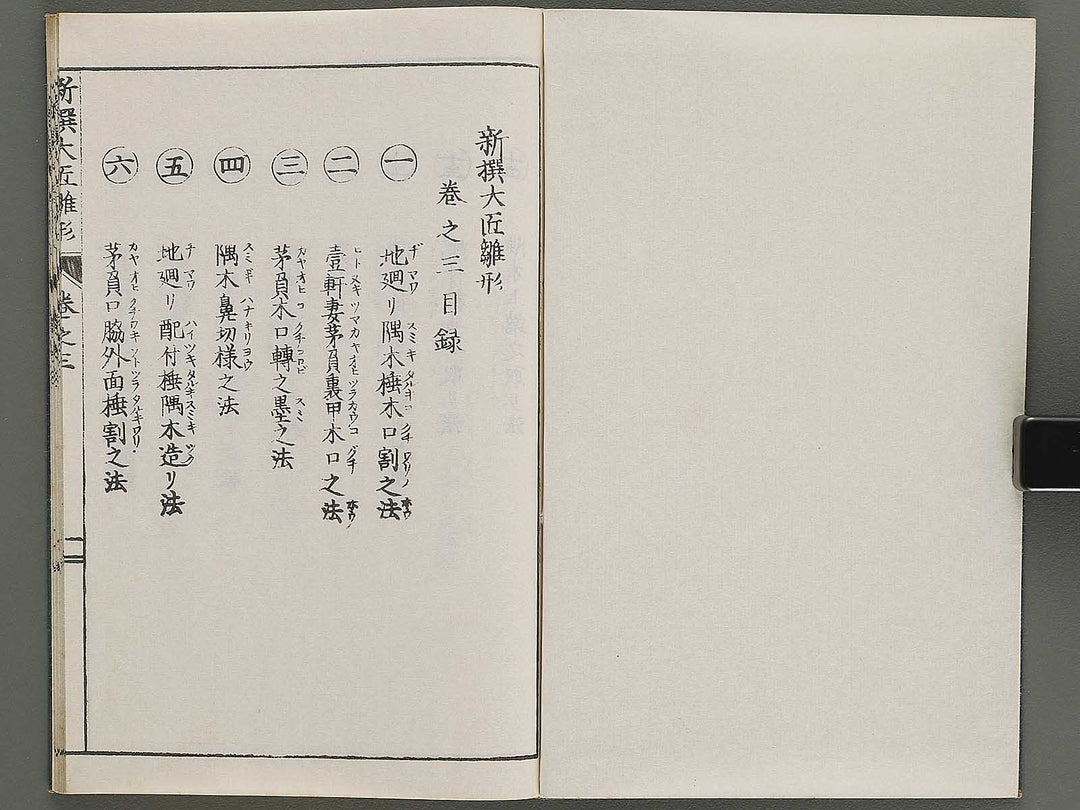 新撰大匠雛形
巻之三目録
一 地廻リ隅木棰木口割之法
二 壹軒妻茅負裏甲木口之法
三 茅負木口轉之墨之法
四 隅木鼻切様之法
五 地廻リ配付棰隅木造リ法
六 茅負口脇外面棰割之法
新撰大匠雛形
巻之三